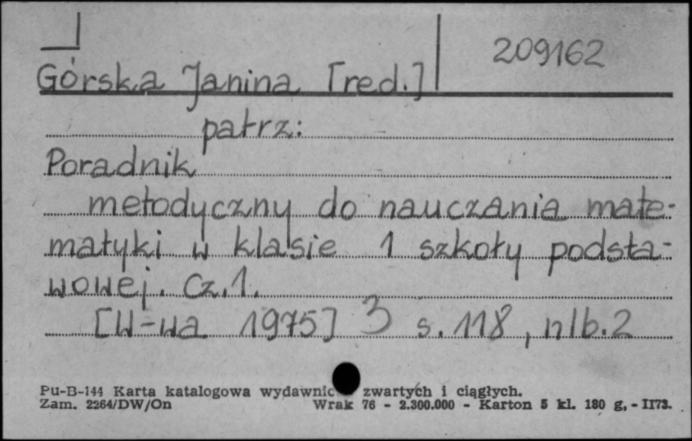 209162
Górska Janina [red.]
patrz:
Poradnik
metodyczny do nauczania mate-
matyki w klasie 1 szkoły podsta-
wowej. Cz.1.
[W-wa 1975] 3 s. 118, nlb. 2
Pu-B-144 Karta katalogowa wydawnic zwartych i ciągłych.
Zam. 2264/DW/On Wrak 76 - 2.300.000 - Karton 5 kl. 180 g, - II73.